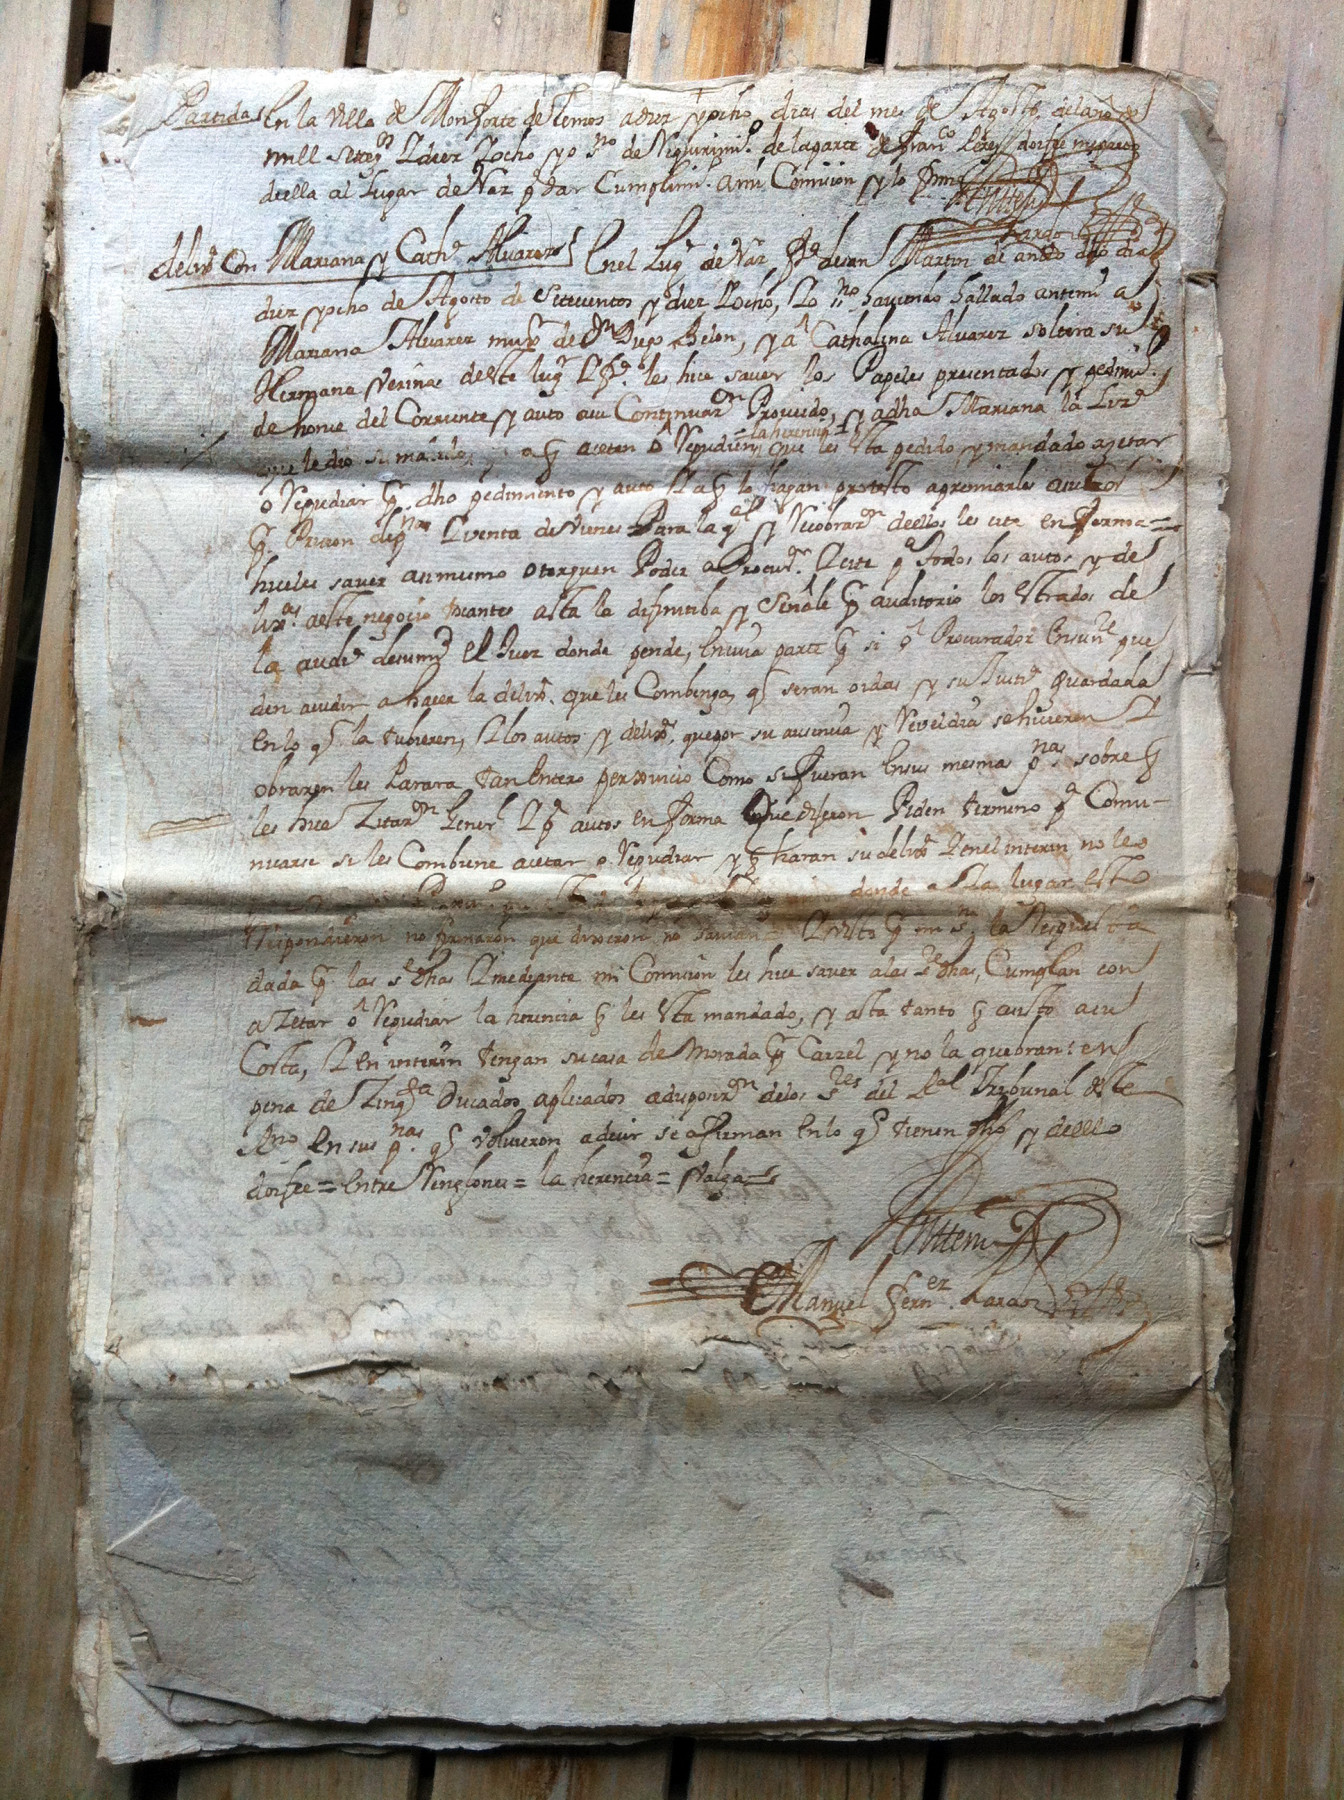 Partida en la villa de Monforte de Lemos a diez y ocho dias del mes de Agosto del año de
mill seteᶜᵒˢ y diez y ocho yo sⁿᵒ de Requirimiᵗᵒ de la parte de Franᶜᵒ doi fee me parto
de ella al Lugar de Nar pᵃ dar Cumplimᵗᵒ a mi Comision y lo firmo
delixᵃ con Mariana y Cathᵃ Alvarez En el Lugʳ de Nar, fᵃ de san Martin de dho dia
diez y ocho de Agosto de Setecientos y diez y ocho, Yo sⁿᵒ haviendo hallado ante mi a
Mariana Alvarez mugᵉʳ de Dⁿ Diego Belon, y a Cathalina Alvarez soltera su
Hermana Vecinas deste lugʳ y fᵃ les hice saver los Papeles presentados y pedimᵗᵒ
de honce del Corriente y auto a su Continuazᵒⁿ Proveido, y a dha Mariana la Lizᵃ
que le dio su marido, a q aceten o Repudien la herencia que les esta pedido y mandado azetar
o Repudiar pʳ dho pedimiento y auto y a q lo hagan protesto apremiarles a su Cos
pʳ Prision de pⁿᵃˢ y venta de vienes Para la qᵃˡ y Recobrazᵒⁿ de ellos les cite en forma
hiceles saver asimismo otorguen Poder a Procuʳ y cite pᵃ todos los autos y de
lixᵃˢ a este negocio tocantes asta la difinitiba y Señale pʳ auditorio los Estrados de
la audiᵃ de su mᵈ el Juez donde pende, en cuia parte pʳ si o Procurador en su nᵉ que
den acudir a hacer la delixᵃ que les Combenga, q seran oidas y su Justiᵃ guardada
en lo q la tubieren, y los autos y delixᵃ que por su ausencia y Reveldia se hicieren y
obraren les Parara tan entero perxuicio Como si fueran en sus mesmas pⁿᵃˢ sobre q
les hice Zitazᵒⁿ Generˡ y pʳ autos en forma que dijeron Piden termino pᵃ Comu-
nicarse si les Combiene acetar o Repudiar y q haran su delixᵃ y en el interin no les
donde a lugar esto
Respondieron no firmaron que dixeron no savian = y visto pʳ mi sⁿᵒ la Respuesta
dada pʳ las sᵉ dhas y mediante mi Comision les hice saver a las sᵉ dhas, Cumplan con
azetar o Repudiar la herencia q les esta mandado, y asta tanto q asisto a su
Costa, y en interin tengan su casa de morada pʳ Carzel y no la quebranten
pena de Zinqᵗᵃ Ducados aplicados a dispozᵒⁿ de los sʳᵉˢ del Rᵃˡ Tribunal deste
Rⁿᵒ en sus pⁿᵃˢ q volvieron a decir se afirman en lo q tienen dho y de ello
doi fee = entre Renglones = la herencia = Valga =
Ante mi
Manuel Fernᵉᶻ